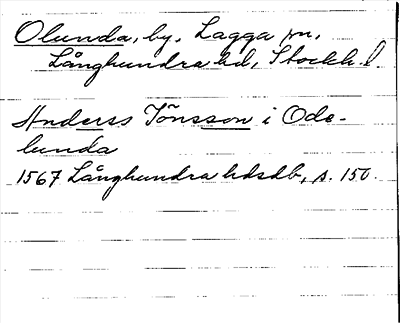 Olunda, by, Lagga sn,
Långhundra hd, Stockh. l.
Anderss Jönsson i Ode-
lunda
1567 Långhundra hdsdb, s. 150.